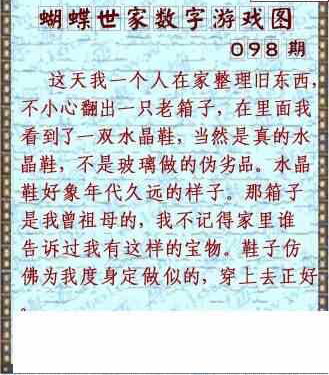 蝴蝶世家数字游戏图
098期
这天我一个人在家整理旧东西,
不小心翻出一只老箱子，在里面我
看到了一双水晶鞋，当然是真的水
晶鞋，不是玻璃做的伪劣品。水晶
鞋好象年代久远的样子。那箱子
是我曾祖母的，我不记得家里谁
告诉过我有这样的宝物。鞋子仿
佛为我度身定做似的，穿上去正好
。